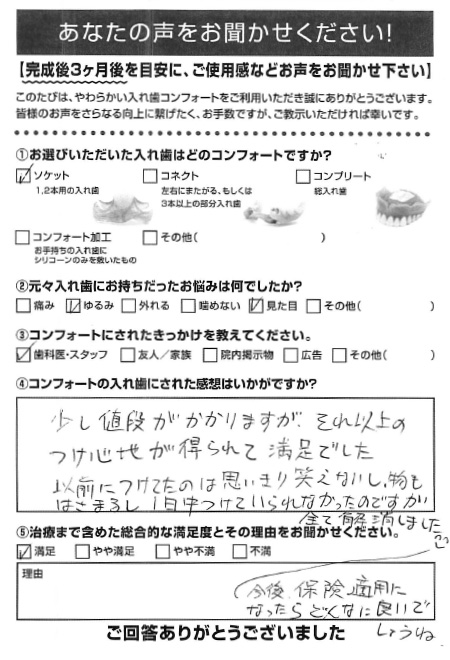 あなたの声をお聞かせください!
【完成後3ヶ月後を目安に、ご使用感などお声をお聞かせ下さい】
このたびは、やわらかい入れ歯コンフォートをご利用いただき誠にありがとうございます。
皆様のお声をさらなる向上に繋げたく、お手数ですが、ご教示いただければ幸いです。
①お選びいただいた入れ歯はどのコンフォートですか?
ソケット コネクト コンプリート
1,2本用の入れ歯 左右にまたがる、もしくは 総入れ歯
3本以上の部分入れ歯
コンフォート加工 その他( )
お手持ちの入れ歯に
シリコーンのみを敷いたもの
②元々入れ歯にお持ちだったお悩みは何でしたか?
痛み ゆるみ 外れる 噛めない 見た目 その他( )
③コンフォートにされたきっかけを教えてください。
歯科医・スタッフ 友人/家族 院内掲示物 広告 その他( )
④コンフォートの入れ歯にされた感想はいかがですか?
少し値段がかかりますが、それ以上の
つけ心地が得られて満足でした
以前につけてたのは思いきり笑えないし、物も
はさまるし1日中つけていられなかったのですが
全て解消しました
⑤治療まで含めた総合的な満足度とその理由をお聞かせください。
満足 やや満足 やや不満 不満
理由
今後、保険適用に
なったらどんなに良いで
しょうね
ご回答ありがとうございました